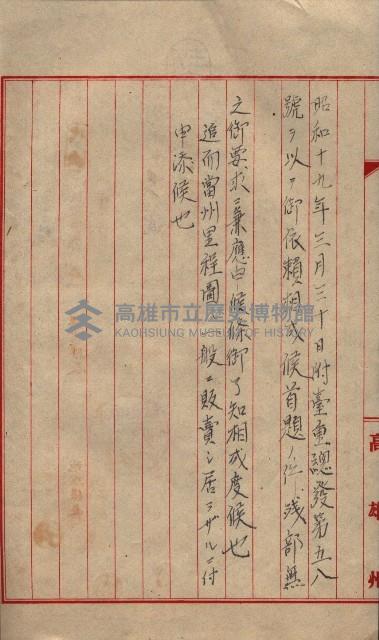 昭和十九年三月三十日附臺重總發第五八
號ヲ以テ御依賴相成候首題ノ件、殘部無
之御要求ニ兼應由候條御了知相成度候也
追而當州里程圖一般ニ販賣シ居ラザルニ付
申添候也
高雄州
高雄市立歷史博物館
KAOHSIUNG MUSEUM OF HISTORY